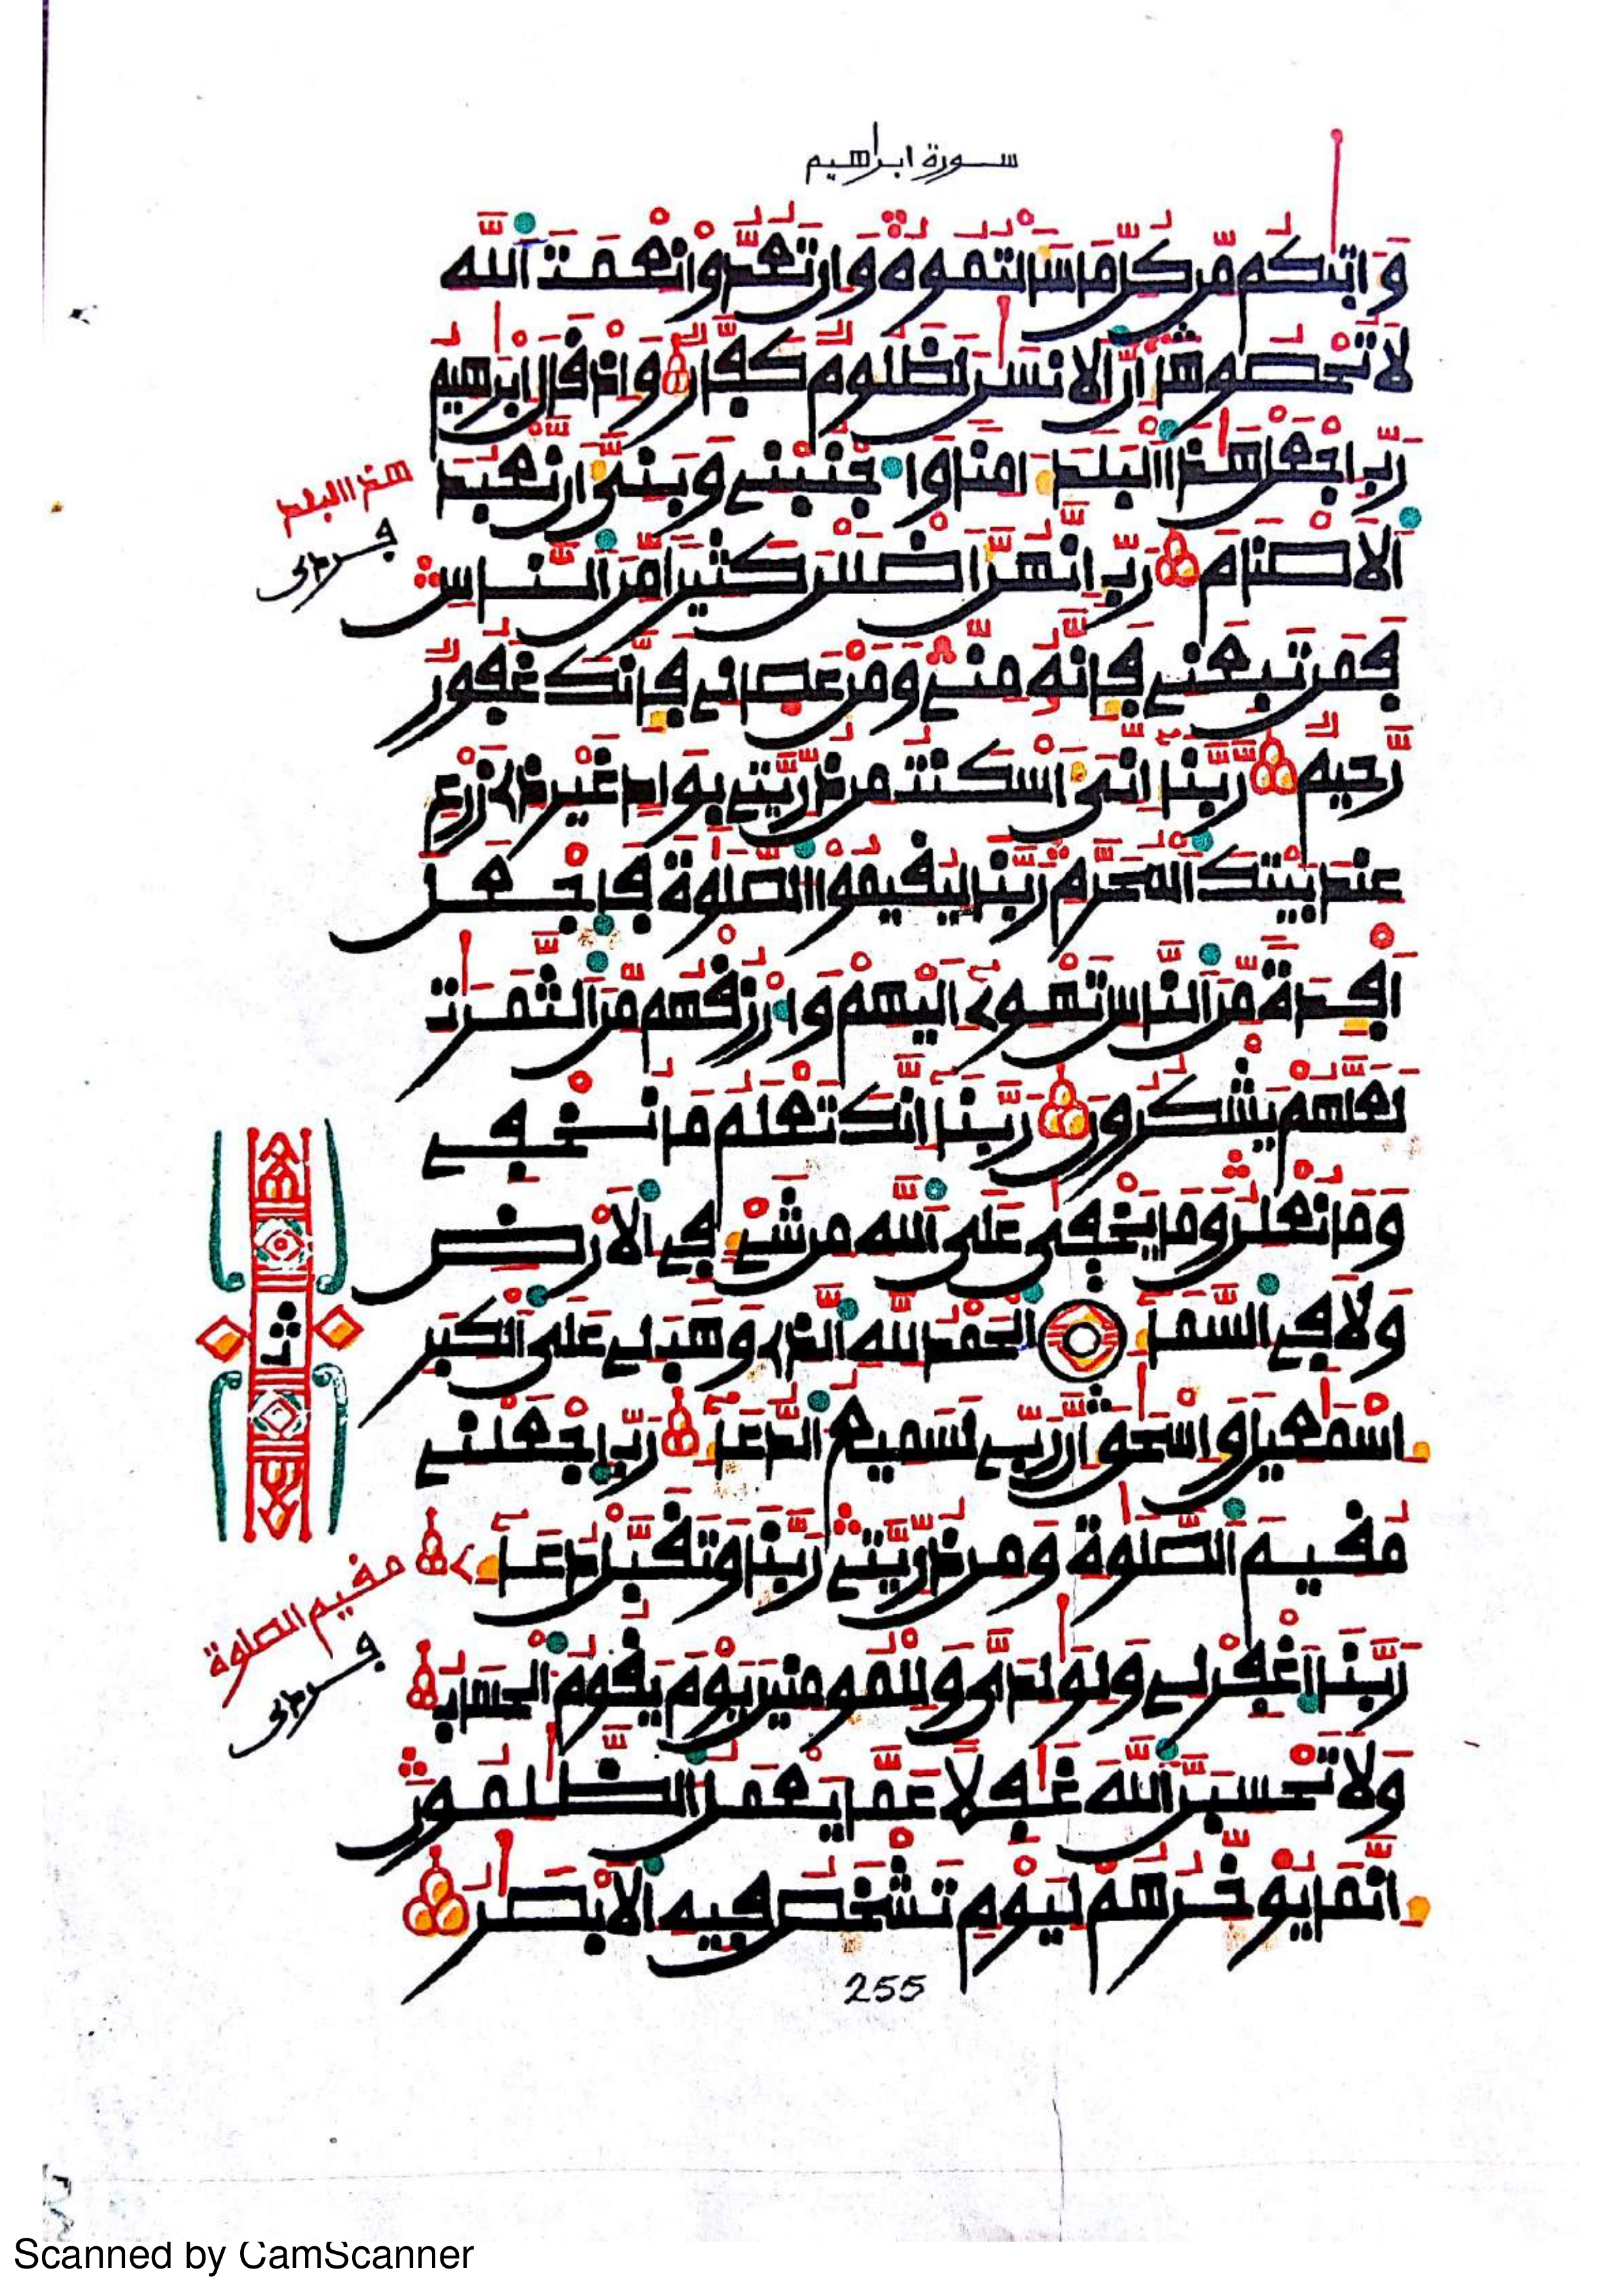 سورة ابراهيم
وَءَاتٜيٰكُم مِّن كُلِّ مَا سَأَلْتُمُوهُ وَإِن تَعُدُّوا۟ نِعْمَتَ اَ۬للَّهِ
لَا تُحْصُوهَا إِنَّ اَ۬لْإِنسَٰنَ لَظَلُومٌ كَفَّارٌ وَإِذْ قَالَ إِبْرَٰهِيمُ
رَبِّ اِ۪جْعَلْ هَٰذَا اَ۬لْبَلَدَ ءَامِنًا وَاجْنُبْنِے وَبَنِيَّ أَن نَّعْبُدَ
اَ۬لْأَصْنَامَ رَبِّ إِنَّهُنَّ أَضْلَلْنَ كَثِيرًا مِّنَ اَ۬لنَّاسِ
فَمَن تَبِعَنِے فَإِنَّهُۥ مِنِّے وَمَنْ عَصَانِے فَإِنَّكَ غَفُورٌ
رَّحِيمٌ رَّبَّنَا إِنِّيَ أَسْكَنتُ مِن ذُرِّيَّتِے بِوَادٍ غَيْرِ ذِے زَرْعٍ
عِندَ بَيْتِكَ اَ۬لْمُحَرَّمِ رَبَّنَا لِيُقِيمُوا۟ اُ۬لصَّلَوٰةَ فَاجْعَلْ
أَفْـِٔدَةً مِّنَ اَ۬لنَّاسِ تَهْوِے إِلَيْهِمْ وَارْزُقْهُم مِّنَ اَ۬لثَّمَرَٰتِ
لَعَلَّهُمْ يَشْكُرُونَ رَبَّنَا إِنَّكَ تَعْلَمُ مَا نُخْفِے
وَمَا نُعْلِنُ وَمَا يَخْفٜيٰ عَلَى اَ۬للَّهِ مِن شَےْءٍ فِے اِ۬لْأَرْضِ
وَلَا فِے اِ۬لسَّمَآءِ اِ۬لْحَمْدُ لِلَّهِ اِ۬لذِے وَهَبَ لِے عَلَى اَ۬لْكِبَرِ
إِسْمَٰعِيلَ وَإِسْحَٰقَ إِنَّ رَبِّے لَسَمِيعُ اُ۬لدُّعَآءِ رَبِّ اِ۪جْعَلْنِے
مُقِيمَ اَ۬لصَّلَوٰةِ وَمِن ذُرِّيَّتِے رَبَّنَا وَتَقَبَّلْ دُعَآءِے
رَبَّنَا اَ۪غْفِرْ لِے وَلِوَٰلِدَيَّ وَلِلْمُومِنِينَ يَوْمَ يَقُومُ اُ۬لْحِسَابُ
وَلَا تَحْسِبَنَّ اَ۬للَّهَ غَٰفِلًا عَمَّا يَعْمَلُ اُ۬لظَّٰلِمُونَ
إِنَّمَا يُوَ۬خِّرُهُمْ لِيَوْمٍ تَشْخَصُ فِيهِ اِ۬لْأَبْصَٰرُ
هذا البلد
مقيم الصلوة
255
Scanned by CamScanner